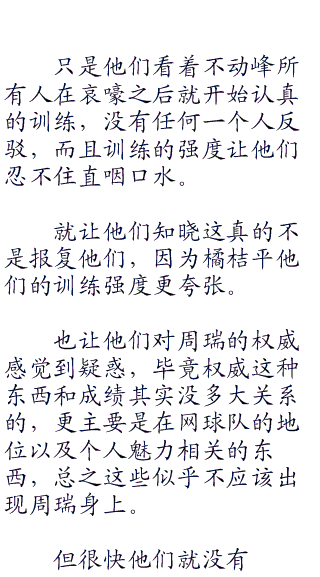 只是他们看着不动峰所
有人在哀嚎之后就开始认真
的训练，没有任何一个人反
驳，而且训练的强度让他们
忍不住直咽口水。
就让他们知晓这真的不
是报复他们，因为橘桔平他
们的训练强度更夸张。
也让他们对周瑞的权威
感觉到疑惑，毕竟权威这种
东西和成绩其实没多大关系
的，更主要是在网球队的地
位以及个人魅力相关的东
西，总之这些似乎不应该出
现周瑞身上。
但很快他们就没有